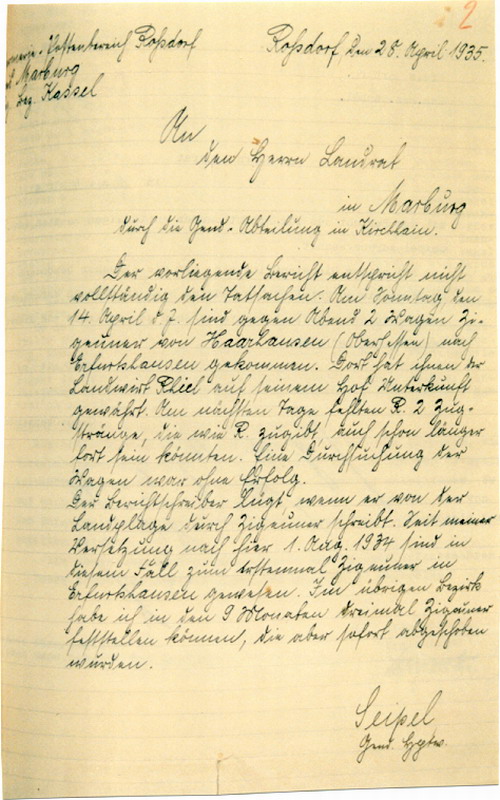 2
Postenbereich Roßdorf
Marburg
Bez. Kassel
Roßdorf den 28. April 1935.
An
den Herrn Landrat
in Marburg
durch die Gend.-Abteilung in Kirchhain.
Der vorliegende Bericht entspricht nicht
vollständig den Tatsachen. Am Sonntag den
14. April d. J. sind gegen Abend 2 Wagen Zi-
geuner von Haarhausen (Oberhessen) nach
Erfurtshausen gekommen. Dort hat ihnen der
Landwirt Rhiel auf seinem Hof Unterkunft
gewährt. Am nächsten Tage fehlten R. 2 Zug-
stränge, die wie R. zugibt, auch schon länger
fort sein könnten. Eine Durchsuchung der
Wagen war ohne Erfolg.
Der Berichtschreiber lügt wenn er von der
Landplage durch Zigeuner schreibt. Seit meiner
Versetzung nach hier 1. Aug. 1934 sind in
diesem Fall zum erstenmal Zigeuner in
Erfurtshausen gewesen. Im übrigen Bezirk
habe ich in den 9 Monaten dreimal Zigeuner
feststellen können, die aber sofort abgeschoben
wurden.
Seipel
Gend. Hptw.